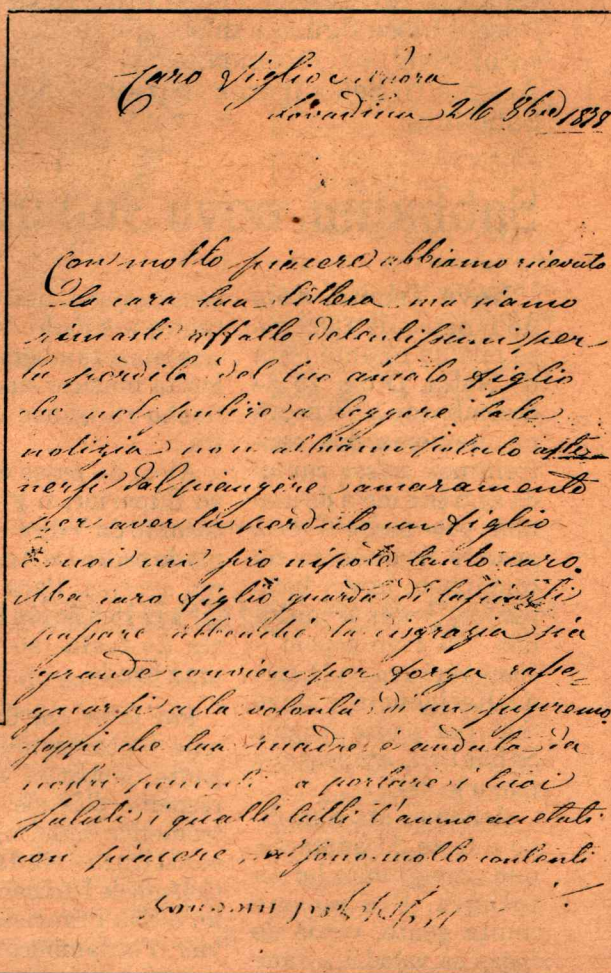 Caro figlio e nuora
Lovadina 26 8bre 1878
Con molto piacere abbiamo ricevuto
la cara tua lettera ma siamo
rimasti affatto dolentissimi per
la perdita del tuo amato figlio
che nel sentire a leggere tale
notizia non abbiamo potuto aste-
nersi dal piangere amaramente
per aver tu perduto un figlio
e noi un pro nipote tanto caro.
Ma caro figlio guarda di lasciarli
passare abbenché la disgrazia sia
grande convien per forza rasse-
gnarsi alla volontà di un supremo.
sappi che tua madre è andata da
nostri parenti a portare i tuoi
saluti i qualli tutti l'anno accetati
con piacere, e sono molto contenti